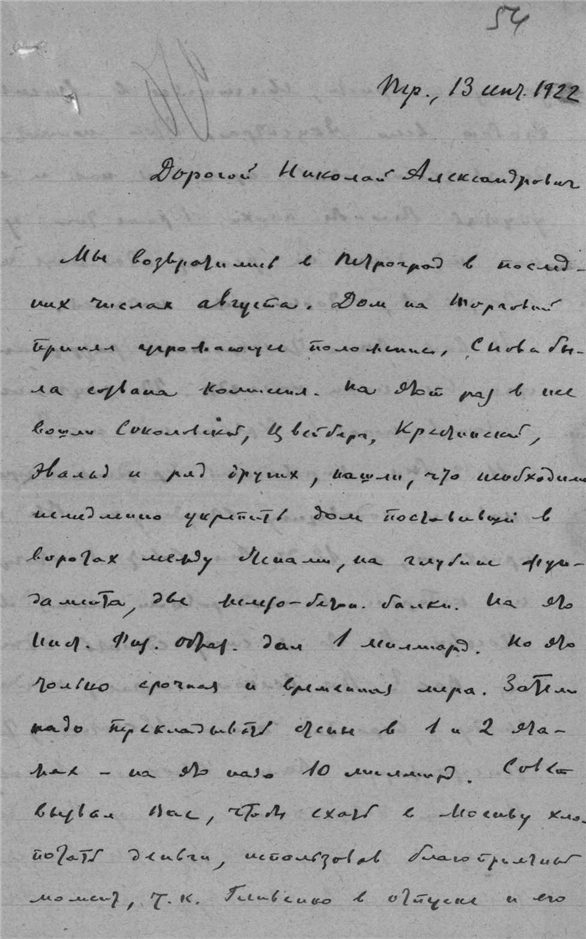 54
Птр., 13 сент. 1922
Дорогой Николай Александрович
Мы возвратились в Петроград в послед-
них числах августа. Дом на Торговой
принял угрожающее положение. Снова бы-
ла созвана комиссия. На этот раз в нее
вошли Соколовский, Цвейберг, Кречинский,
Эвальд и ряд других, нашли, что необходимо
немедленно укрепить дом поставивши в
воротах между стенами, на глубине фун-
дамента, две железо-бетон. балки. На это
Инст. Физ. образ. дал 1 миллиард. Но это
только срочная и временная мера. Затем
надо перекладывать стены в 1 и 2 эта-
жах – на это надо 10 миллиард. Совет
вызвал Вас, чтобы ехать в Москву хло-
потать деньги, использовав благоприятный
момент, т.к. Гливенко в отпуске и его